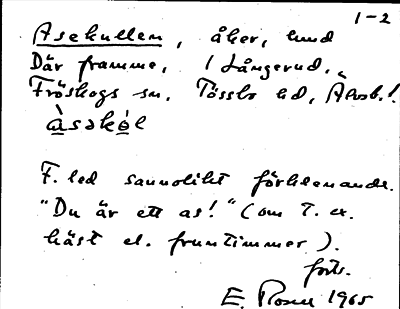 1-2
Asekullen, åker, lund
Där framme, i Långerud,
Fröskogs sn. Tössbo hd, Älvsb.!
àsəkól
F. led sannolikt förklenande.
"Du är ett as!" (om t. ex.
häst el. fruntimmer).
forts.
E. Rosell 1965